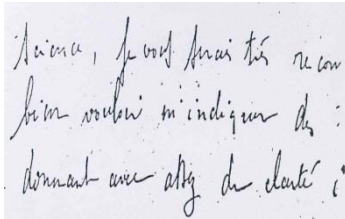 science, je vous serais très recon
bien vouloir m'indiquer des :
donnant avec assez de clarté